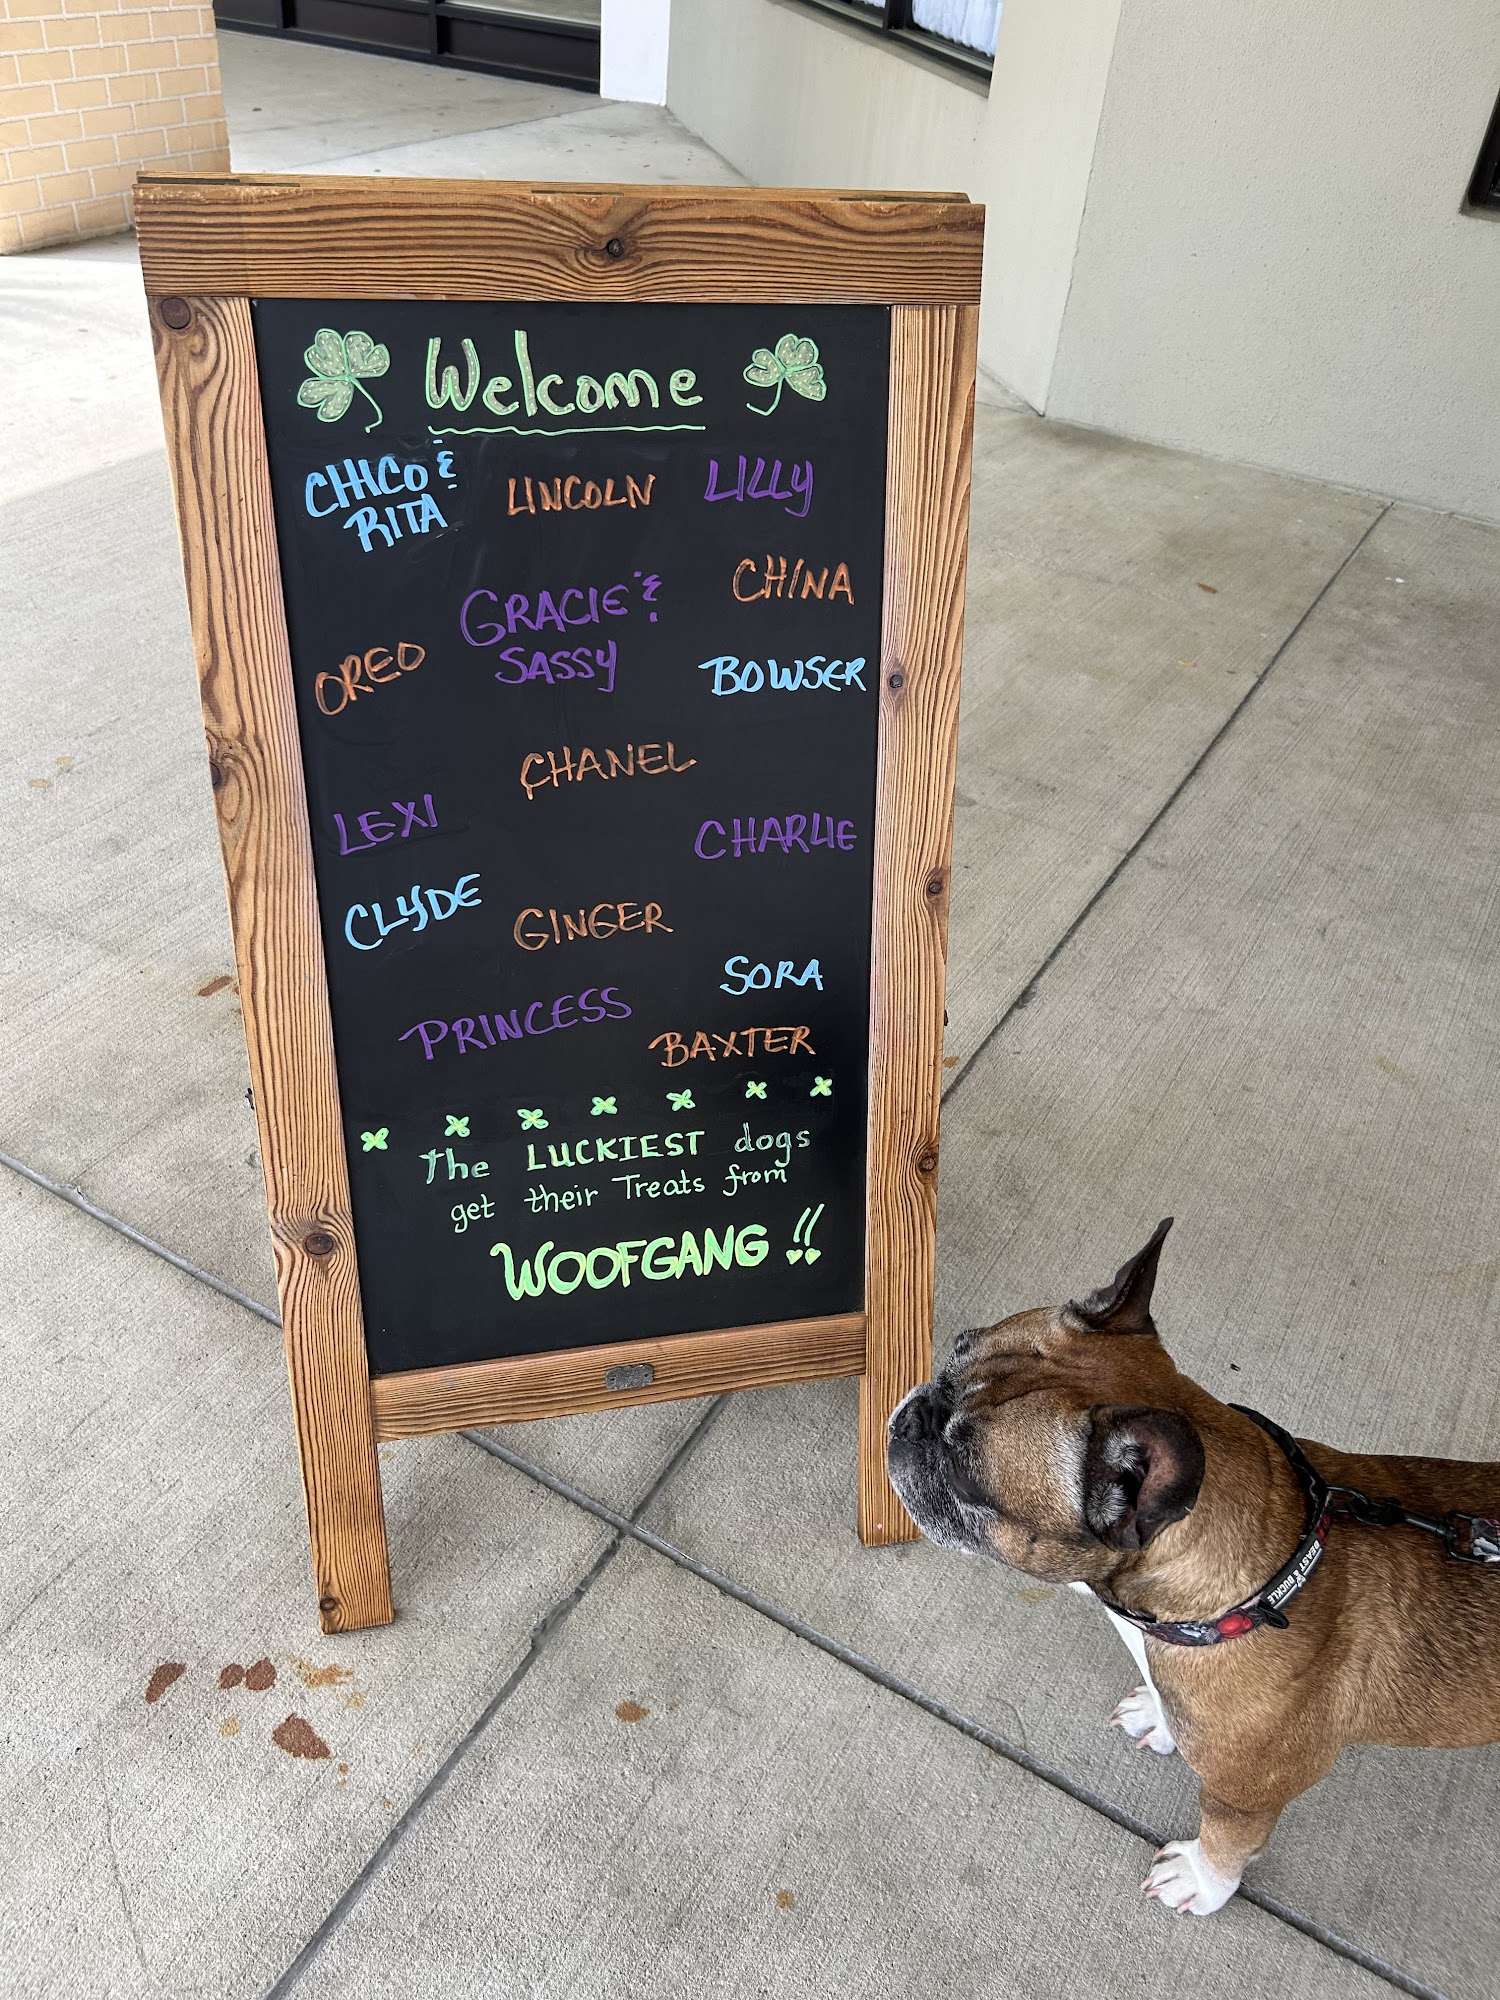 Welcome
CHICO &
RITA
LINCOLN
LILLY
CHINA
GRACIE &
SASSY
OREO
BOWSER
CHANEL
LEXI
CHARLIE
CLYDE
GINGER
SORA
PRINCESS
BAXTER
The LUCKIEST dogs
get their Treats from
WOOFGANG !!
BEAST & BUCKLE